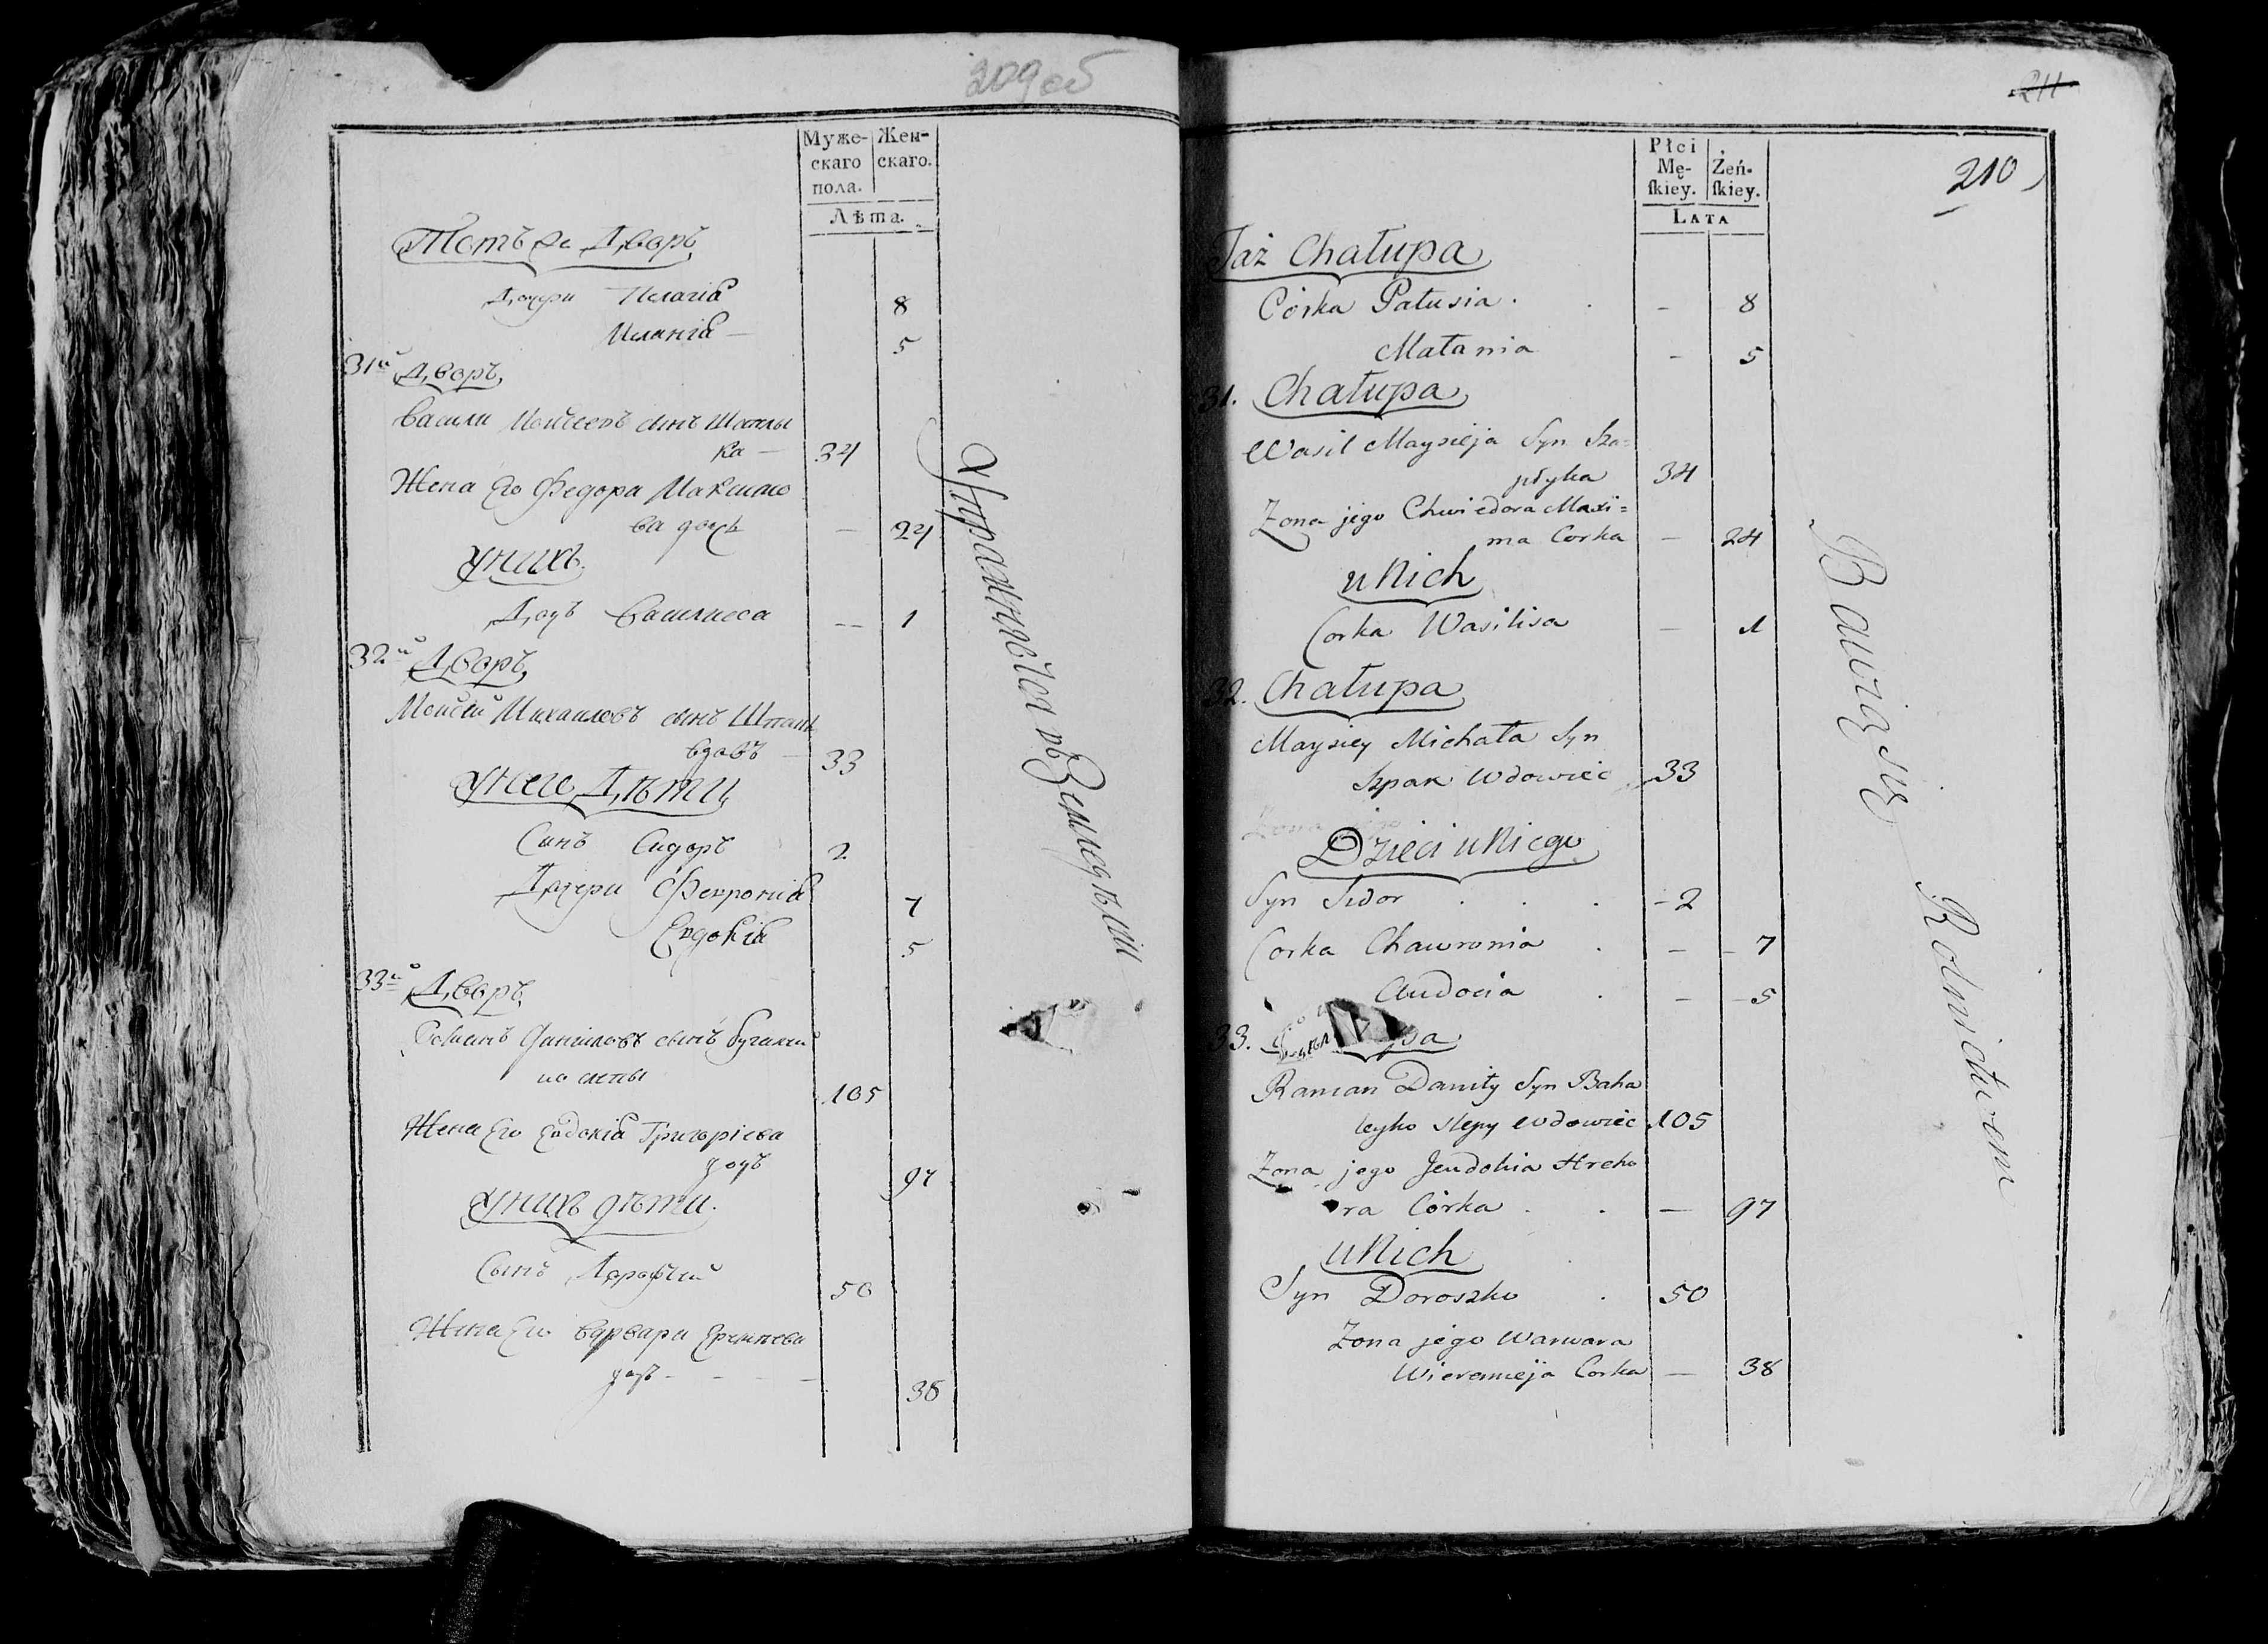 209об
Муже-
скаго
пола.
Жен-
скаго.
Лѣта.
Тотъ же Дворъ
Дочери Пелагія 8
Меланія — 5
31й Дворъ
Василй Моисеевъ сынъ Шаплы
ка — 34
Жена Его Федора Максимо
ва дочь — 24
У нихъ
Дочь Василиса — 1
32й Дворъ
Моисей Михайловъ сынъ Шпакъ
вдовъ — 33
У него Дѣти
Сынъ Сидоръ 2
Дочери Феврониія 7
Евдокія 5
33й Дворъ
Романъ Даниловъ сынъ
слепы 105
Жена Его Евдокія Григоріева
дочь 97
У нихъ дѣти
Сынъ Дорофѣй 50
Жена Его Варвара Еремѣева
дочь - - - 38
Упражняются въ Земледѣліи
211
210
Płci
Mę-
ſkiey.
Żeń-
ſkiey.
LATA
Taż Chałupa
Córka Pałusia . . - 8
Małania - 5
31. Chałupa
Wasil Maysieja Syn Sza=
płyka 34
Zona jego Chwiedora Maxi=
ma Corka — 24
u Nich
Corka Wasilisa — 1
32. Chałupa
Maysiey Michała Syn
Szpak Wdowiec 33
Zona jego
Dzieci u Niego
Syn Sidor . . . - 2
Corka Chawronia . - - 7
Audocia . - - 5
33. pa
Raman Daniły Syn Baha
leyko slepy Wdowiec 105
Zona jego Jeudokia Hreho
ra Córka . . — 97
u Nich
Syn Doroszko . 50
Zona jego Warwara
Wieremieja Corka — 38
Bawią się Rolnictwem